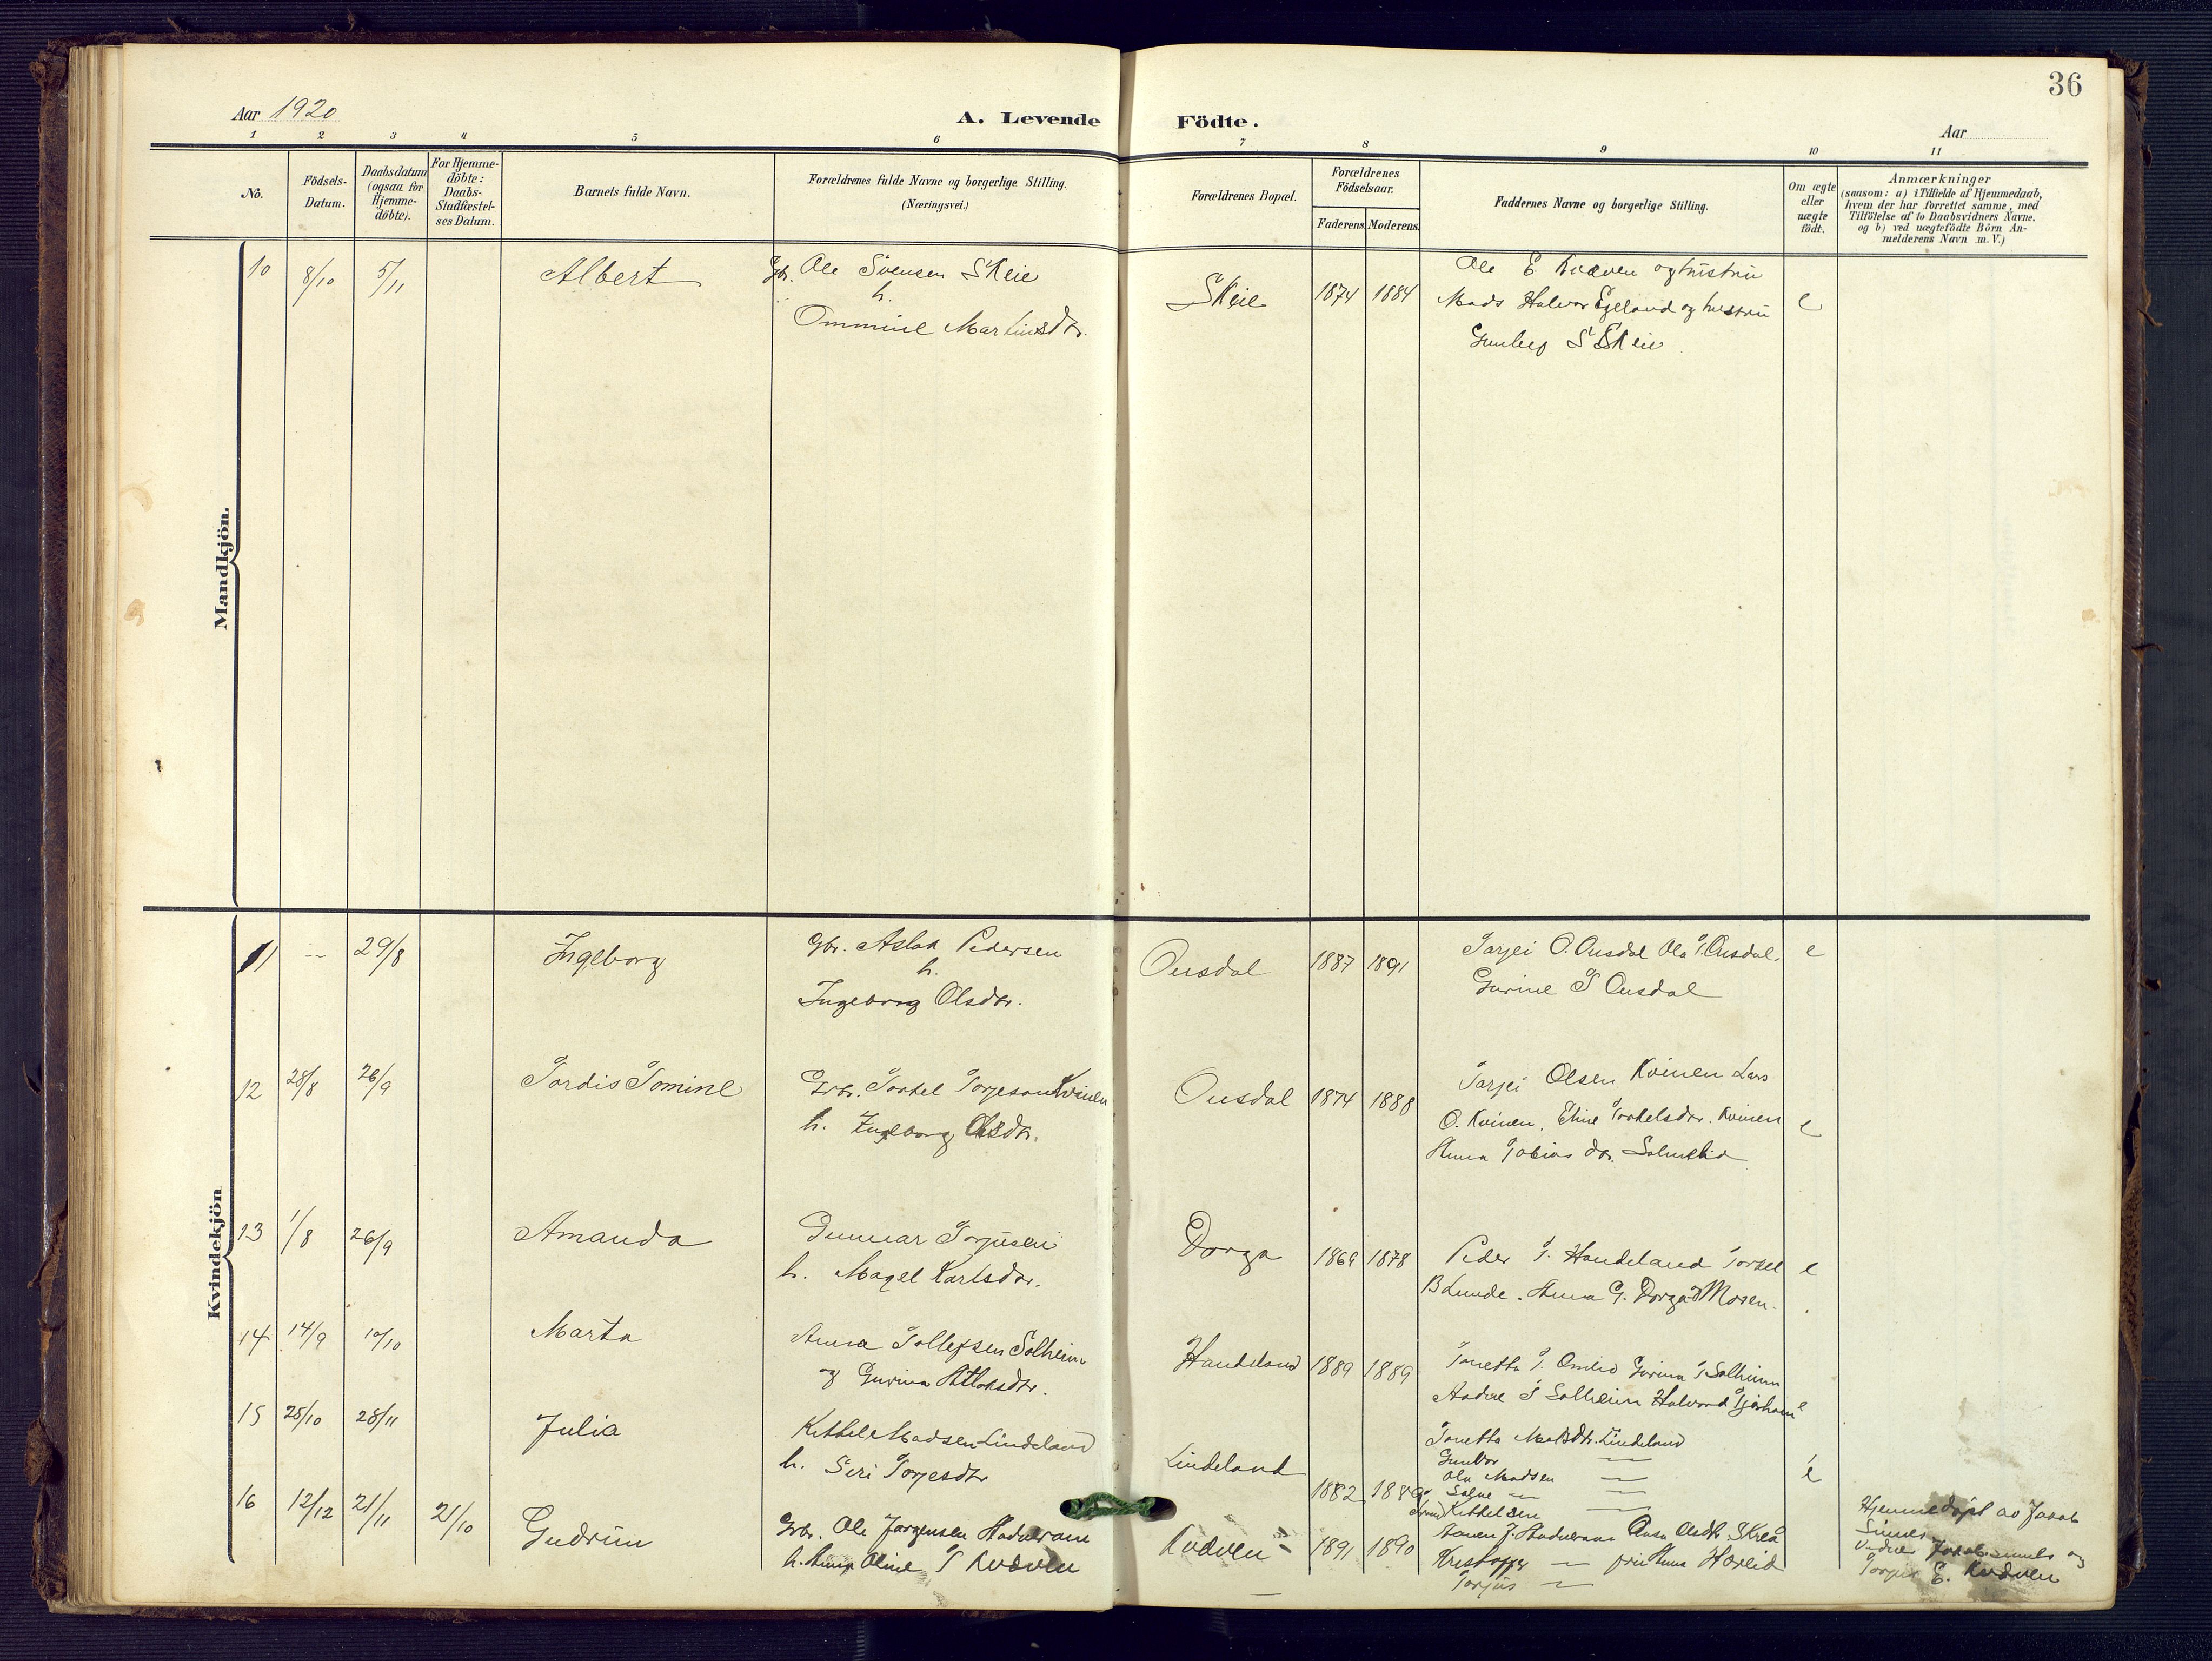 36
Aar 1920
A. Levende Födte.
Aar
1 2 3 4 5 6 7 8 9 10 11
Nö.
Födsels-
Datum.
Daabsdatum
(ogsaa for
Hjemme-
döbte).
For Hjemme-
döbte:
Daabs-
Stadfæstel-
ses Datum.
Barnets fulde Navn.
Forældrenes fulde Navne og borgerlige Stilling.
(Næringsvei.)
Forældrenes Bopæl.
Forældrenes
Födselsaar.
Faderens. Moderens.
Faddernes Navne og borgerlige Stilling.
Om ægte
eller
uægte
födt.
Anmærkninger
(saasom: a) i Tilfælde af Hjemmedaab,
hvem der har forrettet samme, med
Tilföielse af to Daabsvidners Navne.
og b) ved uægtefödte Börn An-
melderens Navn m. V.)
Mandkjön.
10 8/10 5/11 Albert
Gbr. Ole Svensen Skeie
h.
Ommine Martinsdtr.
Skeie 1874 1884
Ole E. Kvæven og hustru
Mads Halvor Egeland og hustru
Gunleif S Skeie
e
Kvindekjön
11 -- 29/8 Ingeborg
Gbr. Aslak Pedersen
h.
Ingeborg Olsdtr.
Ousdal 1887 1891
Tarjei O. Ousdal Ola T. Ousdal.
Gurine T Ousdal
e
12 28/8 26/9 Tordis Tomine
Gbr. Torkel Torjesen Kvinen
h. Ingeborg Olsdtr.
Ousdal 1874 1888
Tarjei Olsen Kvinen Lars
O. Kvinen, Eline Torkelsdtr. Kvinen
Anna Tobias dtr.
e
13 1/8 26/9 Amanda
Gunnar Torjusen
h. Magel Karlsdtr.
Dorga 1869 1878
Peder T. Handeland Torkel
B Lunde. Anna G. Dorga Mosen.
e
14 14/9 10/10 Marta
Tollefsen Solheim
og Gurina
Handeland 1889 1889
Tonetta T. Omlid Gurina T Solheim
Andre T Solheim Halvord Tjørhom
e
15 25/10 28/11 Julia
Kittel Madsen Lindeland
h. Siri Torjesdtr
Lindeland
1882 1889
Tonetta Matsdtr. Lindeland
Gunvor —
Ola Madsen —
Salve — —
Kittelsen —
e
16 12/12 21/11 21/10 Gudrun
Gbr. Ole Jørgensen Haduram
h. Anna Oline T Kvæven
Kvæven 1891 1890
J. Haduram Anna Olsdtr. Skrea
Kristoffer — frue Anna Haaleid
Torjus —
Hjemmedøpt av Jakob
Sinnes
Vidne Jakob Sinnes og
Torjus E. Kvæven